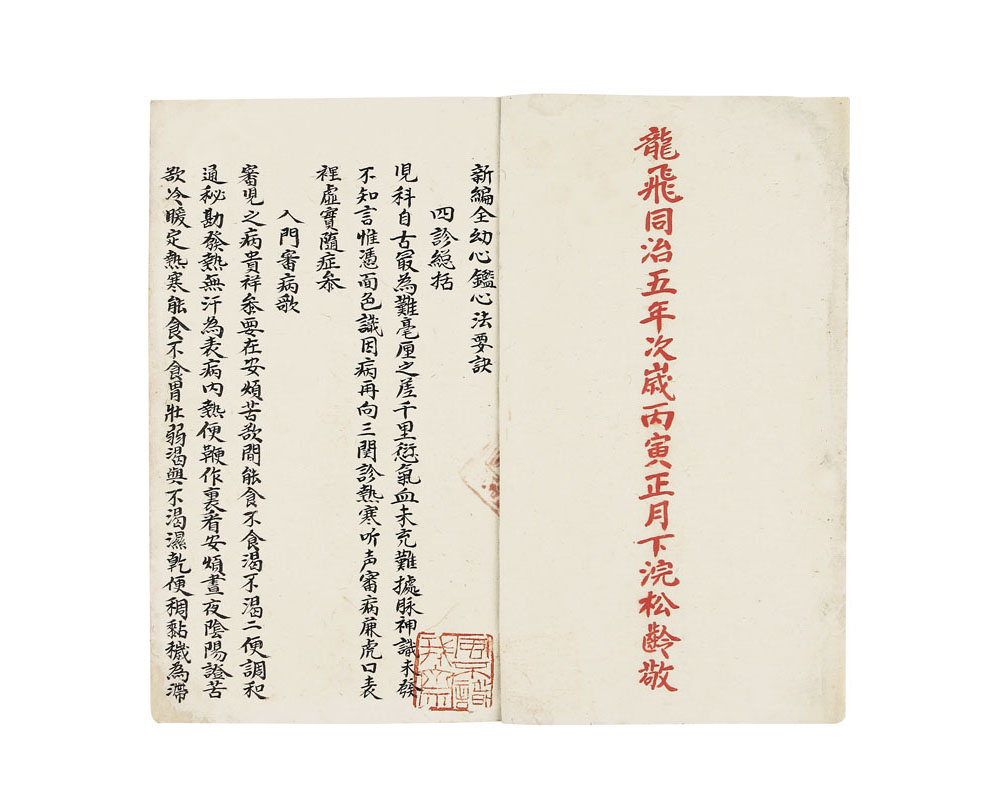 龍飛同治五年次嵗丙寅正月下浣松齡敬
新編全幼心鑑心法要訣
四診緫括
児科自古最為難毫厘之差千里愆氣血未充難據脉神識未發
不知言惟憑面色識因病再向三関診熱寒听声審病蒹虎口表
裡虛實隨症叅
入門審病歌
審児之病貴祥叅要在安煩苦欲間能食不食渴不渴二便調和
通秘勘發熱無汗為表病内熱便鞕作裏看安煩晝夜陰陽證苦
欲冷暖定熱寒能食不食胃壯弱渴與不渴濕乾便稠黏穢為滯